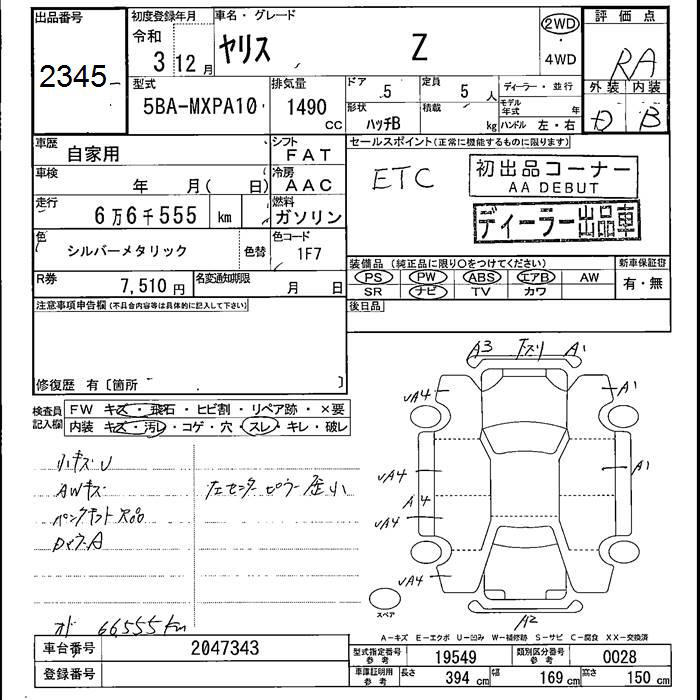 出品番号
2345
初度登録年月
令和
3 12月
車名・グレード
ヤリス Z
2WD
・
4WD
評価点
RA
外装 内装
D B
型式
5BA-MXPA10
排気量
1490 CC
ドア 5
定員 5 人
形状 ハッチB
積載 kg
ディーラー・並行
モデル年式 年
ハンドル 左・右
車歴
自家用
シフト
FAT
車検
年 月( 日)
冷房
AAC
走行
6万6千555 km
燃料
ガソリン
色
シルバーメタリック
色替
色コード
1F7
R券
7,510円
名変通知期限
月 日
セールスポイント(正常に機能するものに限ります)
ETC
初出品コーナー
AA DEBUT
ディーラー出品車
装備品(純正品に限り○をつけてください)
新車保証書
PS PW ABS エアB AW
SR ナビ TV カワ
有・無
後日品
注意事項申告欄(不具合内容等は具体的に記入して下さい)
修復歴 有〔箇所 〕
検査員記入欄
FW キズ・飛石・ヒビ割・リペア跡・×要
内装 キズ・汚レ・コゲ・穴・スレ・キレ・破レ
小キズU
AWキズ
パンクキット欠品
左センターピラー歪小
オド 66555km
A3 下スリ A1
UA4 A1
UA4 A1
A4
UA4
UA4
A2
スペア
A-キズ E-エクボ U-凹み W-補修跡 S-サビ C-腐食 XX-交換済
車台番号 2047343
登録番号
型式指定番号 参考 19549
類別区分番号 参考 0028
車庫証明用 参考
長さ 394 cm
幅 169 cm
高さ 150 cm